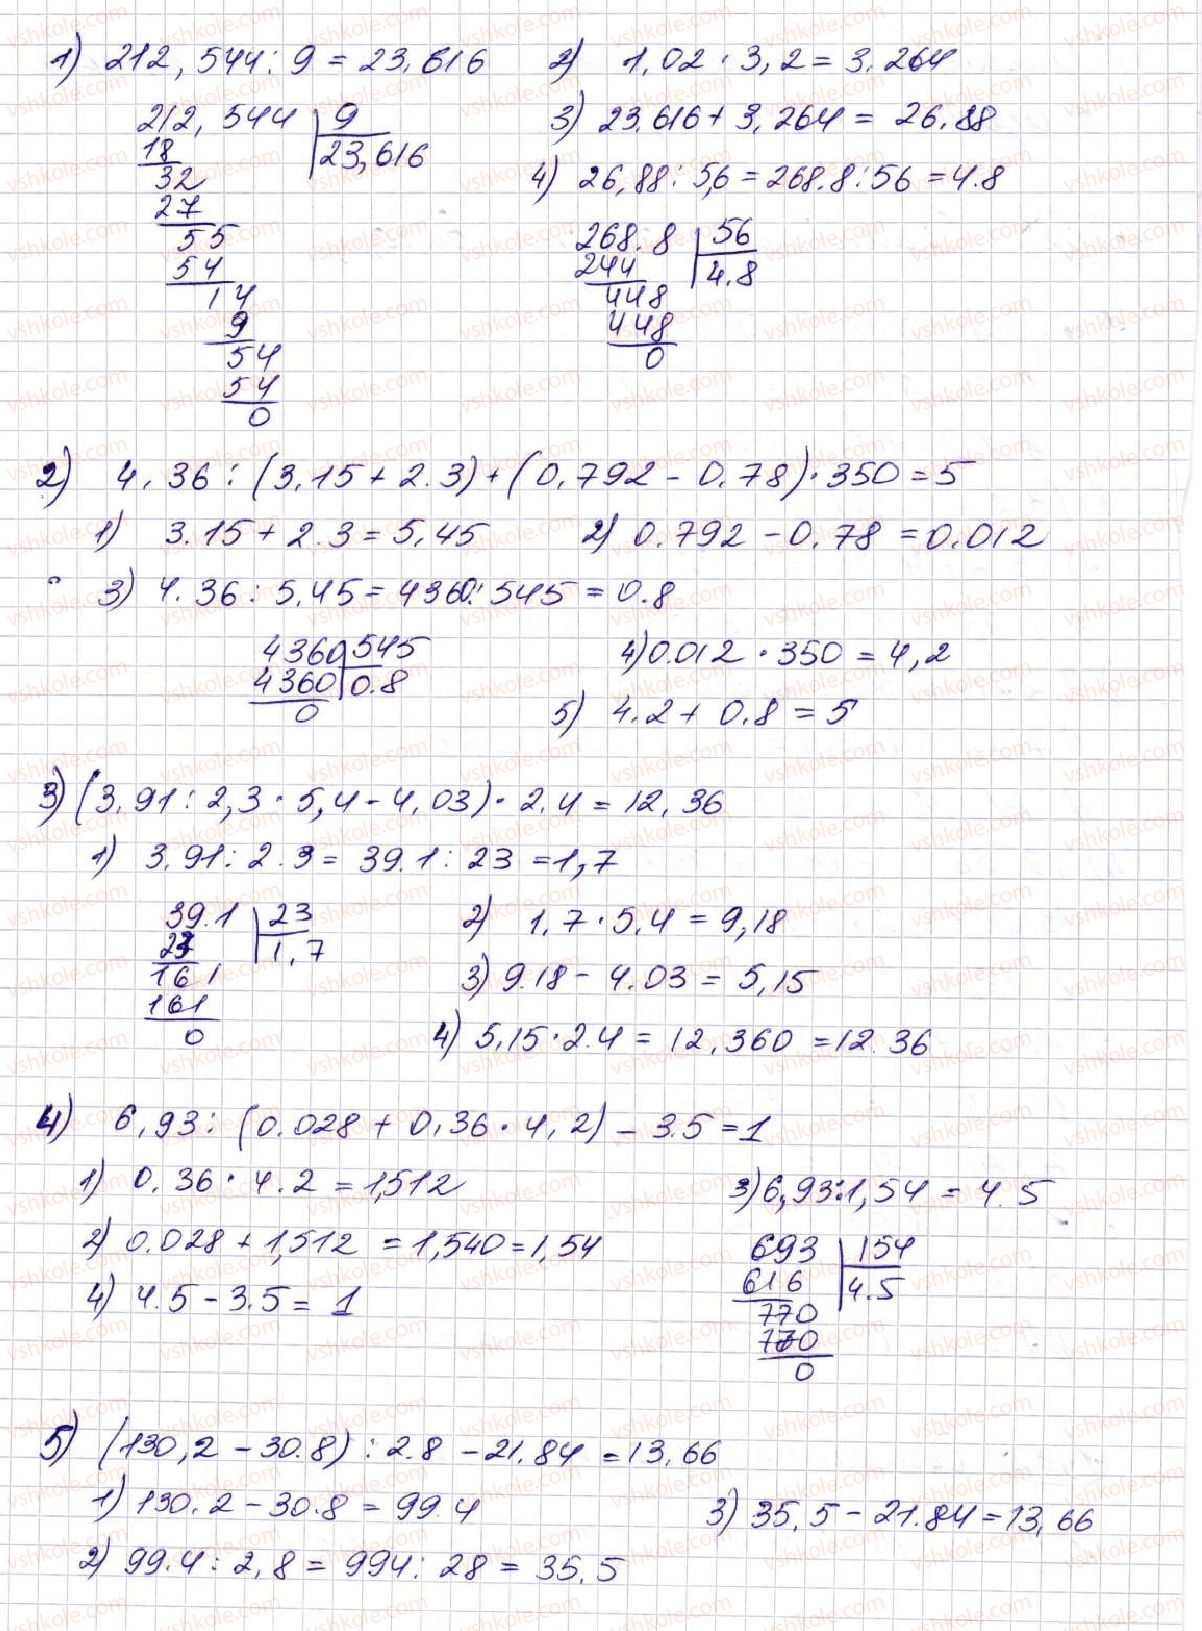 1) 212,544 : 9 = 23,616 2) 1,02 · 3,2 = 3,264
212,544 | 9 3) 23.616 + 3,264 = 26,88
18 23,616
32 4) 26,88 : 5,6 = 268.8 : 56 = 4.8
27
55 268.8 | 56
54 244 4.8
14 448
9 448
54 0
54
0
2) 4,36 : (3,15 + 2.3) + (0,792 - 0,78) · 350 = 5
1) 3.15 + 2.3 = 5,45 2) 0.792 - 0,78 = 0,012
3) 4.36 : 5,45 = 4360 : 545 = 0.8
4360 | 545 4) 0.012 · 350 = 4,2
4360 0.8
0 5) 4.2 + 0.8 = 5
3) (3,91 : 2,3 · 5,4 - 4,03) · 2,4 = 12,36
1) 3,91 : 2.3 = 39.1 : 23 = 1,7
39.1 | 23 2) 1,7 · 5,4 = 9,18
23 1,7
161 3) 9.18 - 4.03 = 5,15
161
0 4) 5,15 · 2.4 = 12,360 = 12.36
4) 6,93 : (0.028 + 0,36 · 4,2) - 3.5 = 1
1) 0,36 · 4.2 = 1,512 3) 6,93 : 1,54 = 4.5
2) 0.028 + 1,512 = 1,540 = 1,54 693 | 154
4) 4.5 - 3.5 = 1 616 4.5
770
770
0
5) (130,2 - 30.8) : 2.8 - 21.84 = 13,66
1) 130.2 - 30.8 = 99.4 3) 35,5 - 21.84 = 13,66
2) 99.4 : 2,8 = 994 : 28 = 35.5
vshkole.com